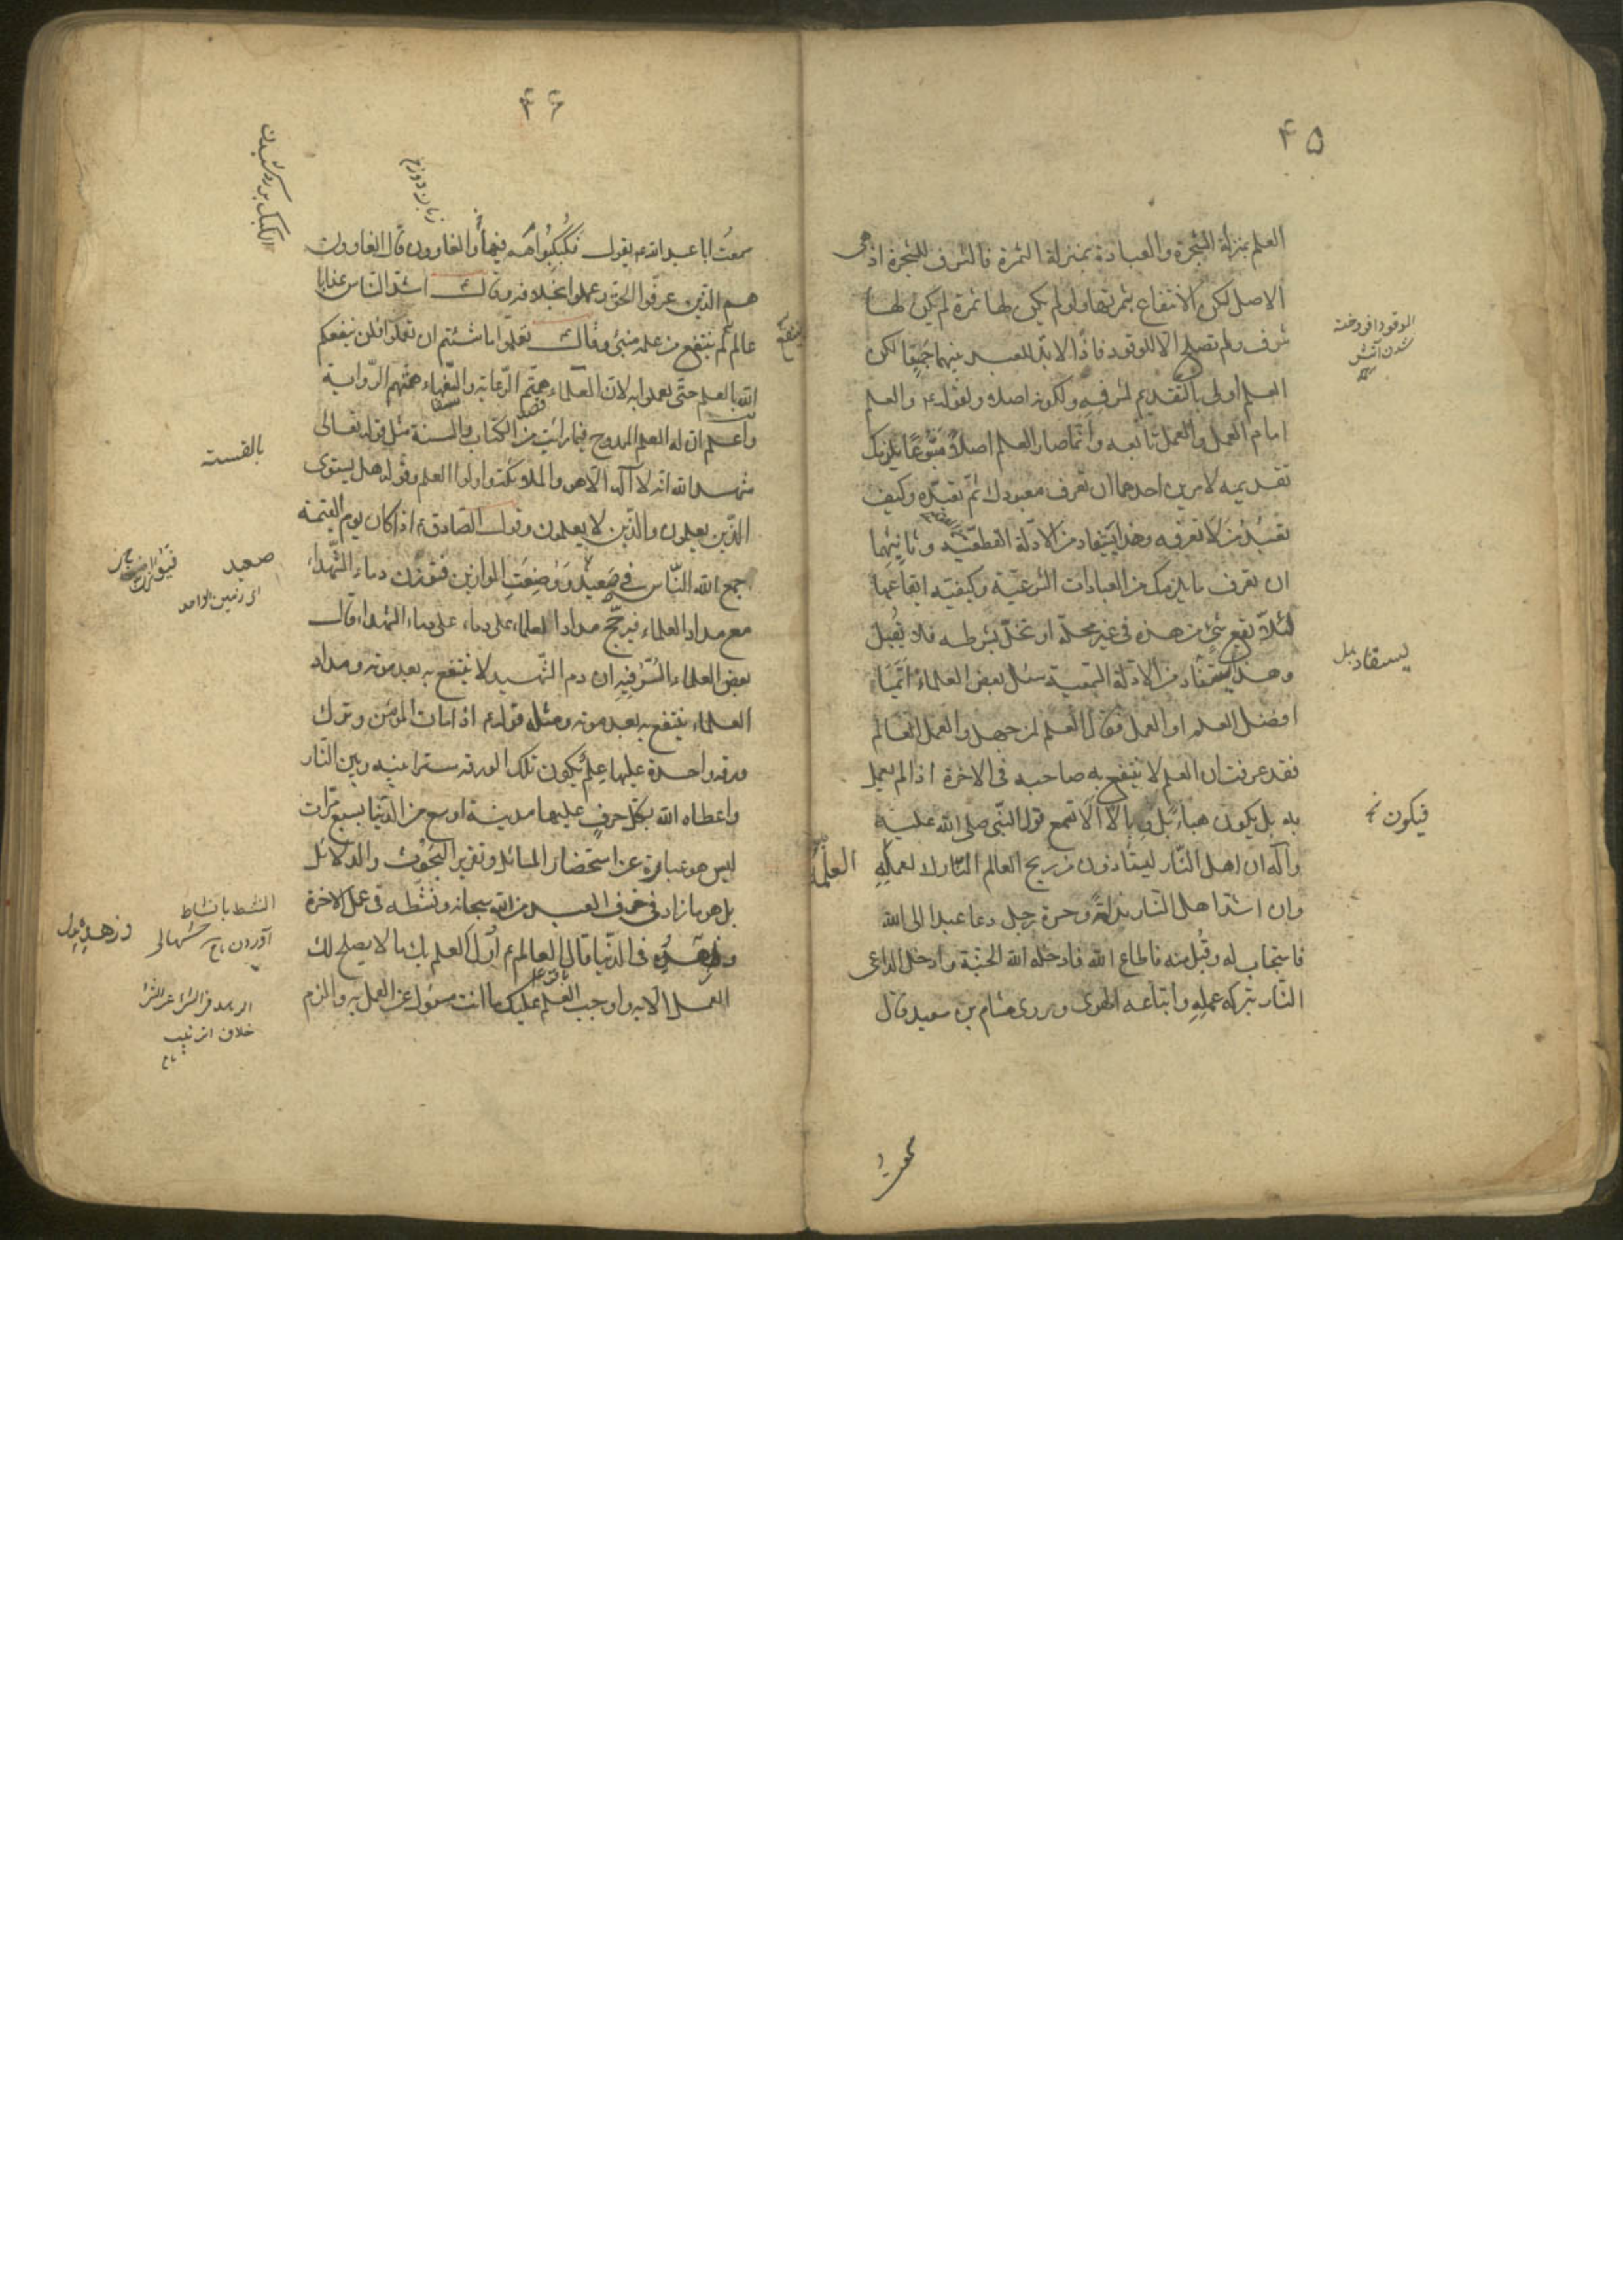 ۴۵
العلم بمنزلة الشجرة والعبادة بمنزلة الثمرة فالشرف للشجرة اذ هى
الاصل لكن الانتفاع بثمرتها ولو لم يكن لها ثمرة لم يكن لها
شرف ولم تصلح الا للوقود فاذًا لا بدّ للعبد منهما جميعًا لكن
العلم اولى بالتقديم لشرفه ولكونه اصلا ولقوله والعلم
امام العمل والعمل تابعه وانّما صار العلم اصلاً متبوعًا يلزمك
تقديمه لامرين احدهما ان تعرف معبودك ثمّ تعبده وكيف
تعبد من لا تعرفه وهذا يستفاد من الادلّة القطعيّة وثانيهما
ان تعرف ما يلزمك من العبادات الشرعيّة وكيفيّة ايقاعها
لئلّا يقع شئ من هذه فى غير محلّه او تخلّ بشرطه فلا يُقبل
وهذا يستفاد من الادلّة السمعية سئل بعض العلماء ايّما
افضل العلم او العمل فقال العلم لمن جهل والعمل للعالم
فقد عرفت ان العلم لا ينتفع به صاحبه فى الاخرة اذا لم يعمل
به بل يكون هباء بل وبالا الا تسمع قول النبى صلى الله عليه
وآله ان اهل النّار ليتأذون من ريح العالم التارك لعلمه
وان اشد اهل النّار ندامة وحسرة رجل دعا عبدا الى الله
فاستجاب له وقُبل منه فاطاع الله فادخله الله الجنّة وادخل الداعى
النّار بتركه عمله واتباعه الهوى وروى هشام بن سعيد قال
الوقود افروخته
شدن آتش
يستفاد
فيكون
سمعتُ
۴۶
سمعتُ ابا عبد الله يقول فكُبكِبُوا فيها والغاوون قال الغاوون
هم الذين عرفوا الحق وعملوا بخلافه وقال اشدّ النّاس عذابا
عالم لم ينتفع من علمه بشئ وقال تعلموا ما شئتم ان تعلموا فلن ينفعكم
الله بالعلم حتّى تعملوا به لان العلماء همتهم الرّعاية والسفهاء همتهم الرّواية
واعلم ان العلم الممدوح فيما رايت من الكتاب والسنة مثل قوله تعالى
شهد الله انه لا اله الا هو والملائكة واولوا العلم وقوله هل يستوى
الذّين يعلمون والذّين لا يعلمون وقول الصّادق اذا كان يوم القيمة
جمع الله النّاس فى صعيد ووُضِعَتِ الموازين فتوزن دماء الشّهداء
مع مداد العلماء فيرجّح مداد العلماء على دماء الشهداء قال
بعض العلماء السّرّ فيه ان دم الشّهيد لا ينتفع به بعد موته ومداد
العلماء ينتفع به بعد موته ومثله قوله اذا مات المؤمن وترك
ورقة واحدة عليها علمٌ يكون تلك الورقة سترا بينه وبين النّار
واعطاه الله بكلّ حرفٍ عليها مدينة اوسع من الدّنيا بسبع مرّات
ليس هو عبارة عن استحضار المسائل وتقرير البحوث والدلائل
بل هو ما زاد فى خوف العبد من الله سبحانه ونشّطه فى عمل الاخرة
وزهّده فى الدّنيا قال العالم اوّل العلم بك ما لا يصلح لك
العمل الا به واوجب العلم عليك ما انت مسئول عن العمل به والزم
زبان دوزخ
صعيد
از زمين
النشط با نشاط
آوردن
خلاف الترغيب